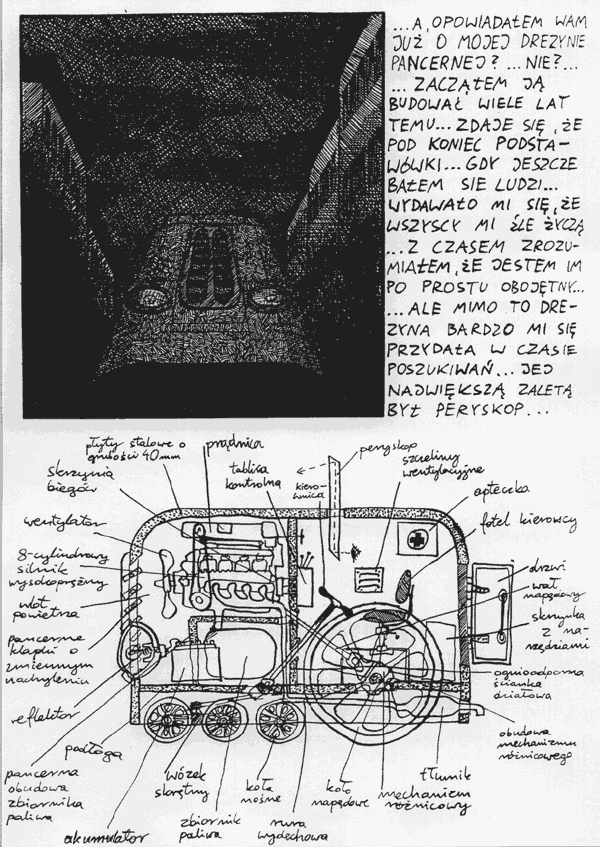 ...A OPOWIADAŁEM WAM
JUŻ O MOJEJ DREZYNIE
PANCERNEJ? ...NIE?...
... ZACZĄŁEM JĄ
BUDOWAĆ WIELE LAT
TEMU... ZDAJE SIĘ, ŻE
POD KONIEC PODSTA-
WÓWKI... GDY JESZCZE
BAŁEM SIĘ LUDZI...
WYDAWAŁO MI SIĘ, ŻE
WSZYSCY MI ŹLE ŻYCZĄ
...Z CZASEM ZROZU-
MIAŁEM, ŻE JESTEM IM
PO PROSTU OBOJĘTNY...
...ALE MIMO TO DRE-
ZYNA BARDZO MI SIĘ
PRZYDAŁA W CZASIE
POSZUKIWAŃ... JEJ
NAJWIĘKSZĄ ZALETĄ
BYŁ PERYSKOP...
płyty stalowe o
grubości 40mm
prądnica
tablica
kontrolna
kiero-
wnica
peryskop
szczeliny
wentylacyjne
apteczka
fotel kierowcy
skrzynia
biegów
wentylator
8-cylindrowy
silnik
wysokoprężny
wlot
powietrza
pancerne
klapki o
zmiennym
nachyleniu
reflektor
podłoga
pancerna
obudowa
zbiornika
paliwa
akumulator
wózek
skrętny
zbiornik
paliwa
koła
nośne
rura
wydechowa
koło
napędowe
mechanizm
różnicowy
tłumik
obudowa
mechanizmu
różnicowego
ognioodporna
ścianka
działowa
skrzynka
z na-
rzędziami
wał
napędowy
drzwi